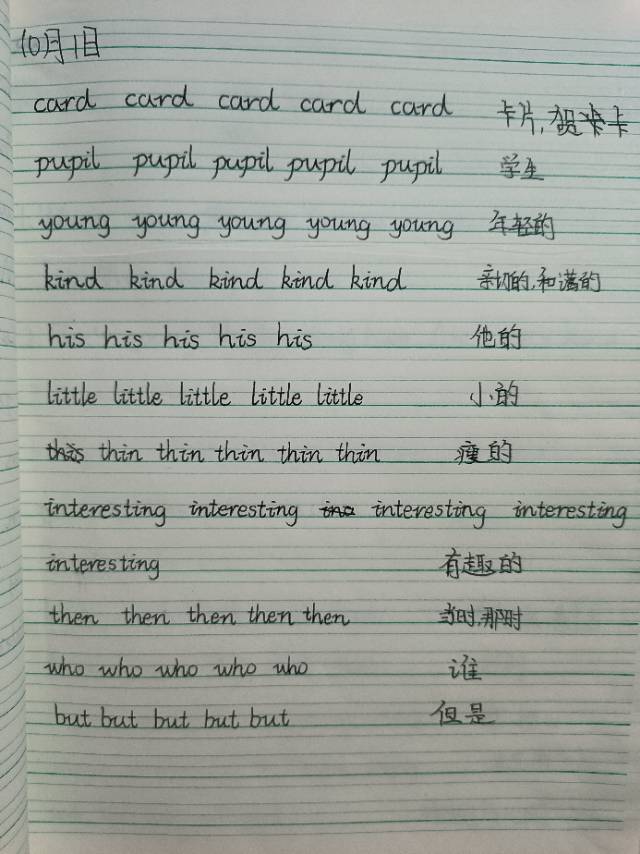 10月1日
card card card card card 卡片,贺卡
pupil pupil pupil pupil pupil 学生
young young young young young 年轻的
kind kind kind kind kind 亲切的,和蔼的
his his his his his 他的
little little little little little 小的
this thin thin thin thin thin 瘦的
interesting interesting ine interesting interesting
interesting 有趣的
then then then then then 当时,那时
who who who who who 谁
but but but but but 但是